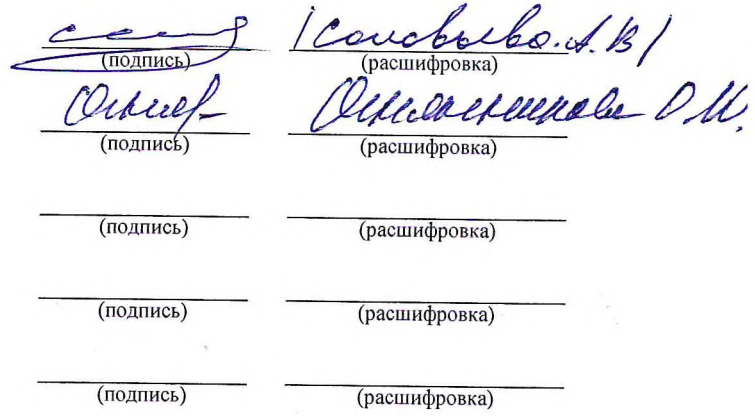 /Соловьева. А. В/
(подпись) (расшифровка)
О. И.
(подпись) (расшифровка)
(подпись) (расшифровка)
(подпись) (расшифровка)
(подпись) (расшифровка)